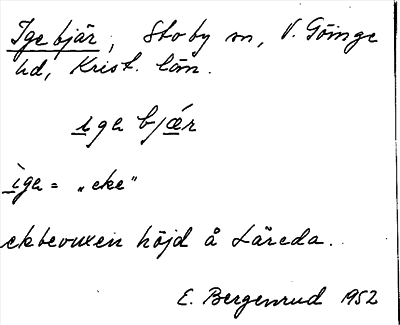 Igebjär, Stoby sn, V. Göinge
hd, Krist. län.
iga bjǽr
ìga = "eke"
ekbevuxen höjd å Läreda.
E. Bergenrud 1952